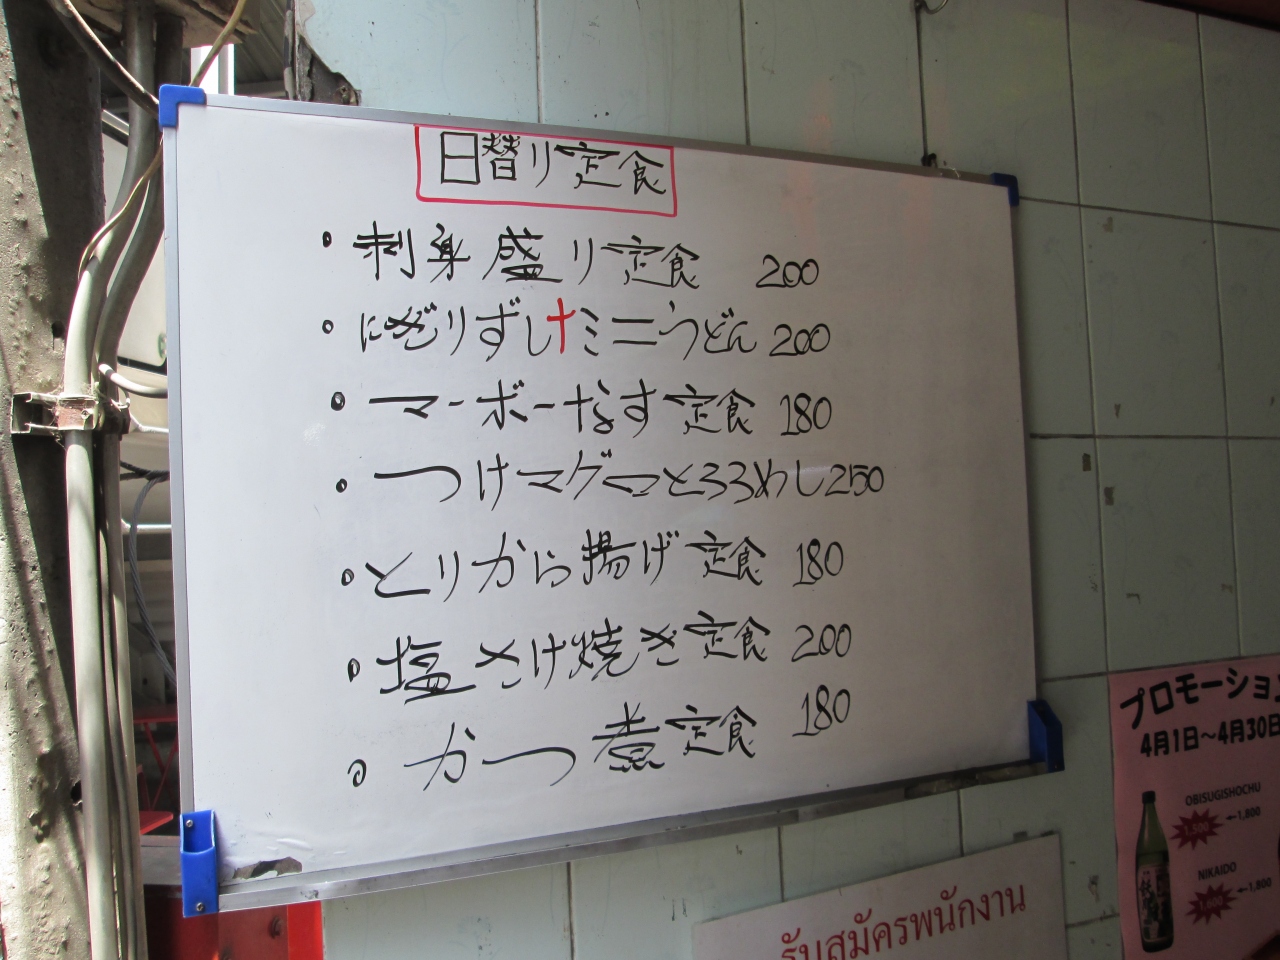 日替り定食
・刺身盛り定食 200
・にぎりずし+ミニうどん 200
・マーボーなす定食 180
・づけマグロとろろめし 250
・とりから揚げ定食 180
・塩さけ焼き定食 200
・かつ煮定食 180
プロモーショ
4月1日～4月30日
OBISUGISHOCHU
1,500 ←1,800
NIKAIDO
←1,800
รับสมัครพนักงาน